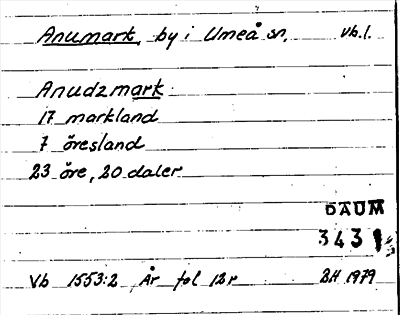 Anumark, by i Umeå sn. Vb.l.
Anudzmark
17 markland
7 öresland
23 öre, 20 daler
DAUM
3431
Vb 1553:2 År fol 12r BH 1979